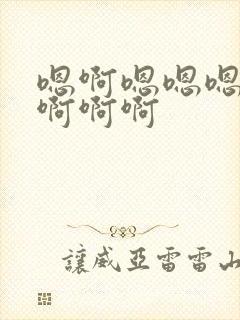 嗯啊嗯嗯嗯
啊啊啊
讓威亞雷雷山